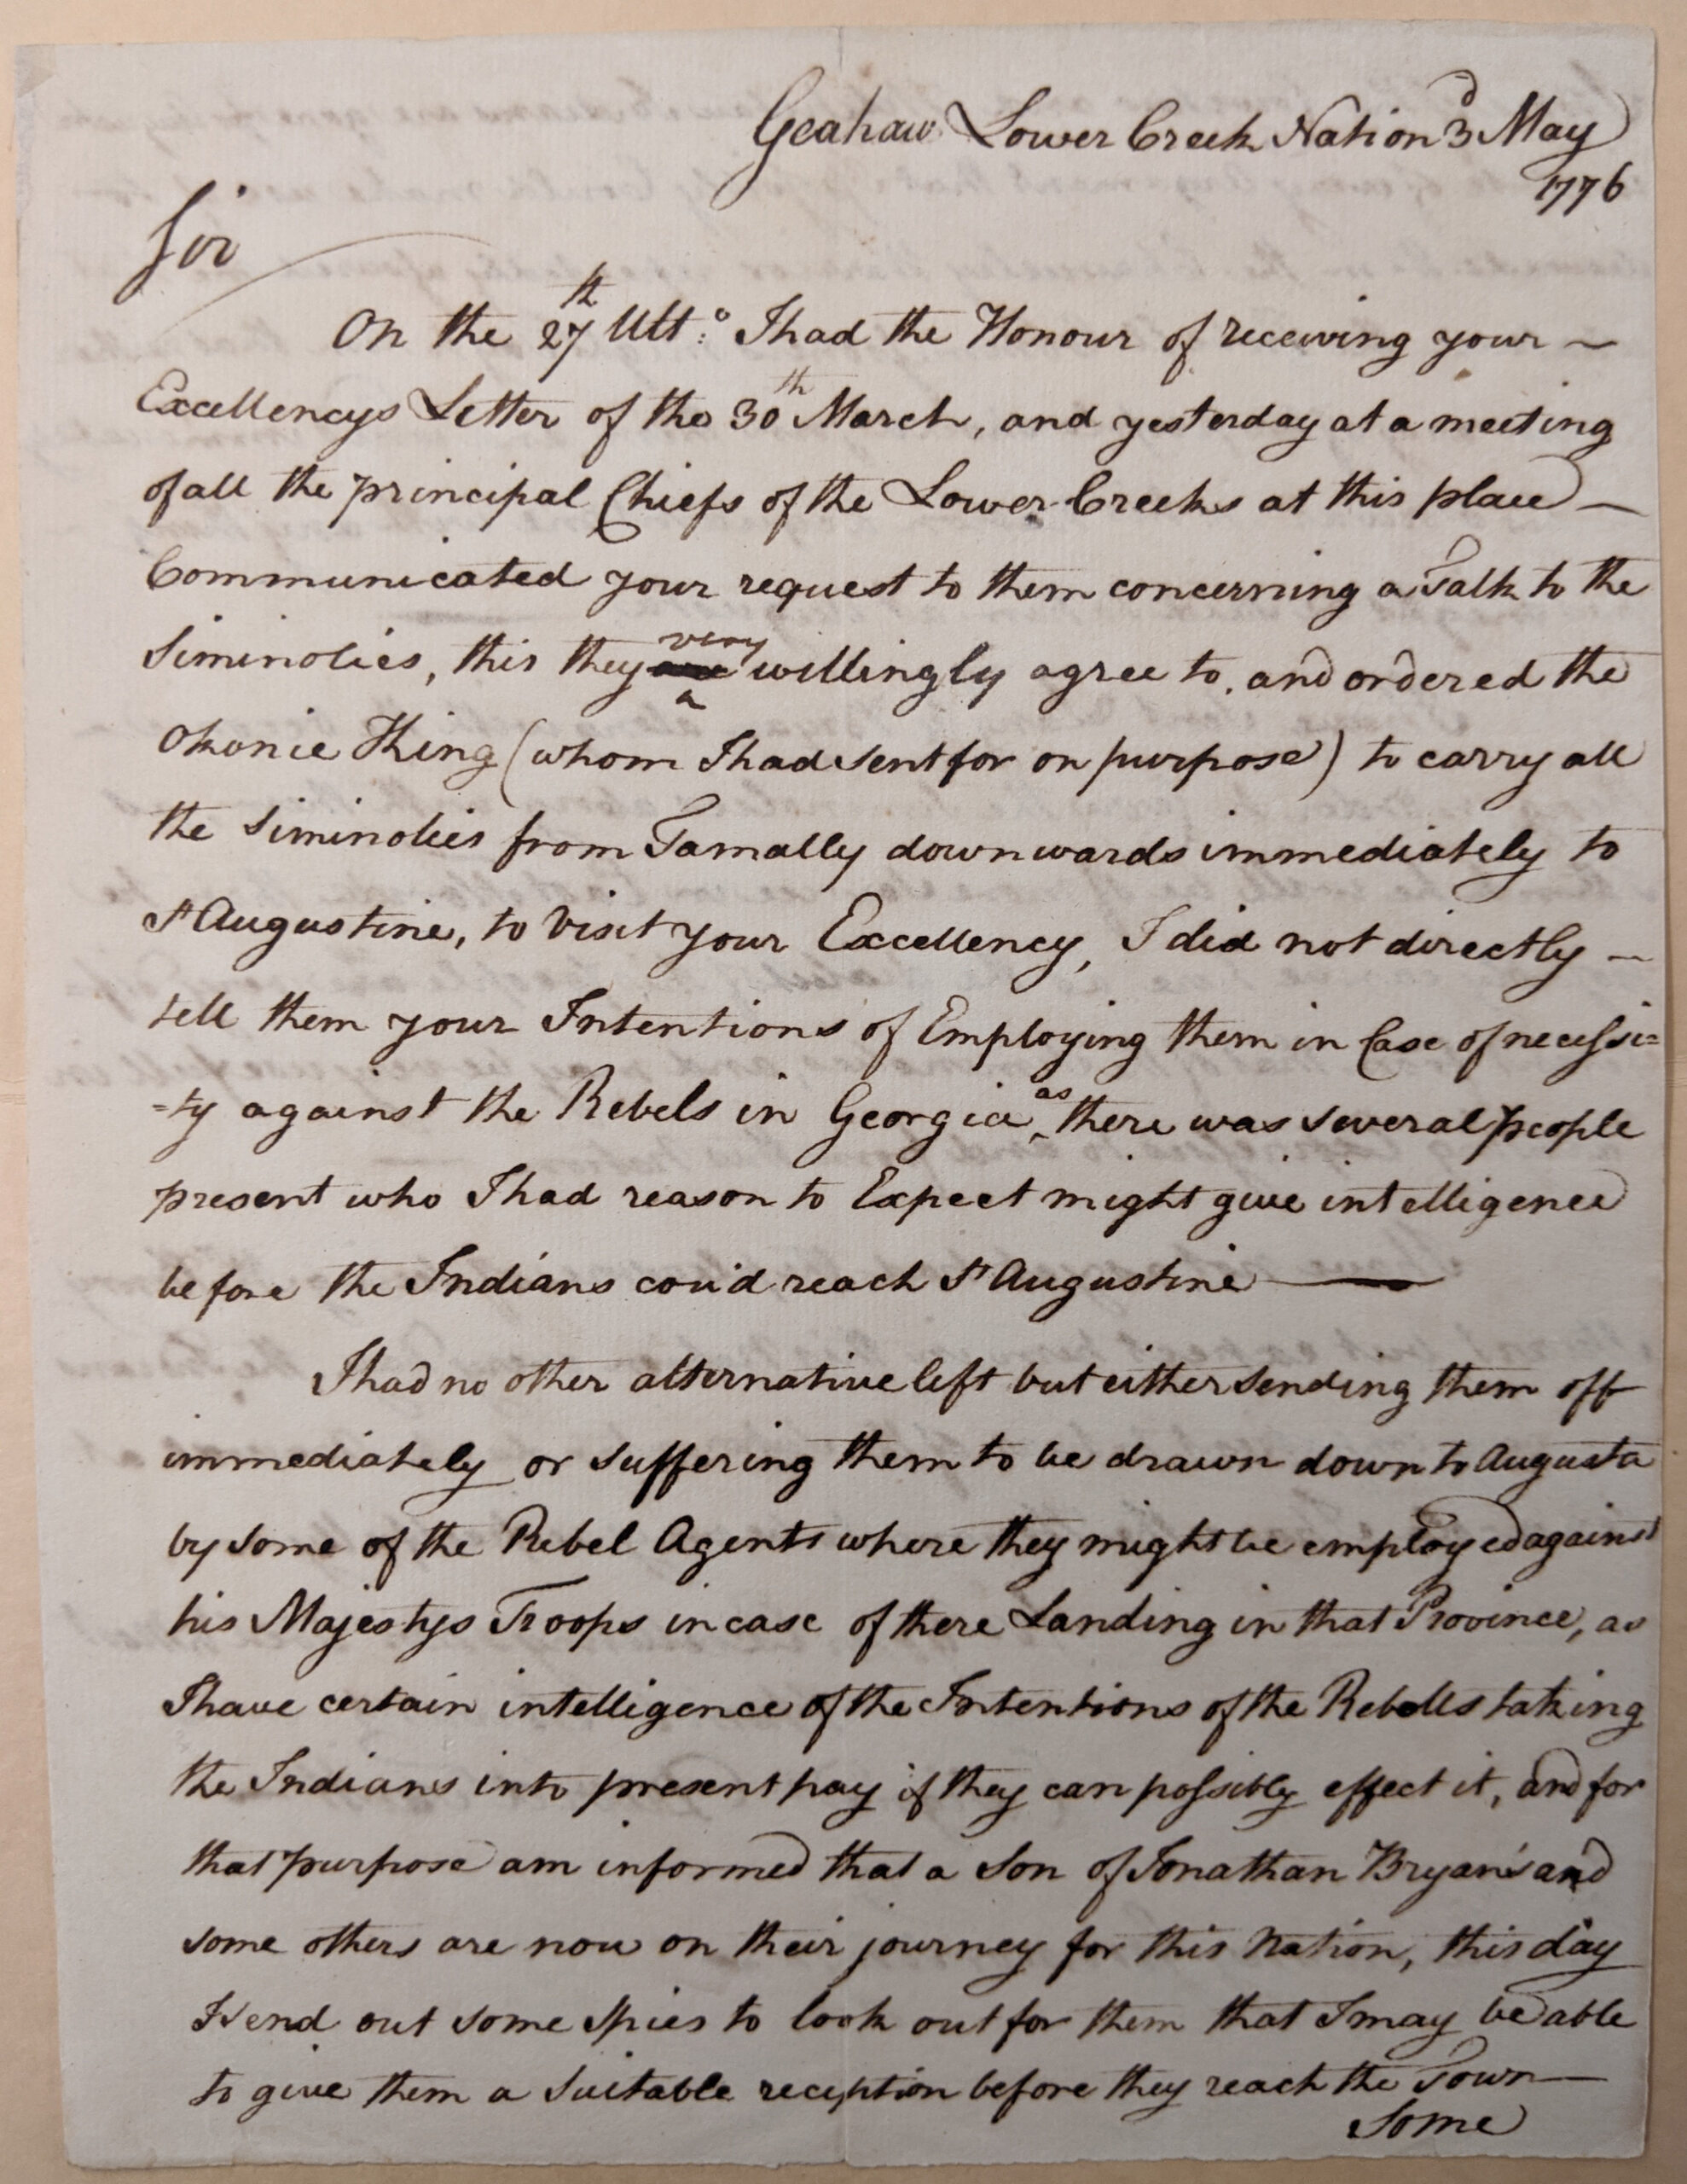 Geahaw Lower Creek Nation 3d May
1776
Sir
On the 27th Ultº: I had the Honour of receiving your ~
Excellencys Letter of the 30th March, and yesterday at a meeting
of all the principal Chiefs of the Lower Creeks at this place —
Communicated your request to them concerning a Talk to the
Siminolies, this they very willingly agree to, and ordered the
Okonie King (whom I had sent for on purpose) to carry all
the Siminolies from Tamally downwards immediately to
St Augustine, to Visit your Excellency, I did not directly —
tell them your Intentions of Employing them in Case of necessi=
=ty against the Rebels in Georgia as there was several people
present who I had reason to Expect might give intelligence
before the Indians cou'd reach St Augustine —
I had no other alternative left but either sending them off
immediately or suffering them to be drawn down to Augusta
by some of the Rebel Agents where they might be employed against
his Majestys Troops in case of there Landing in that Province, as
I have certain intelligence of the Intentions of the Rebells taking
the Indians into present pay if they can possibly effect it, and for
that purpose am informed that a Son of Jonathan Bryan's and
some others are now on their journey for this Nation, this day
I send out some Spies to look out for them that I may be able
to give them a Suitable reception before they reach the Town —
Some